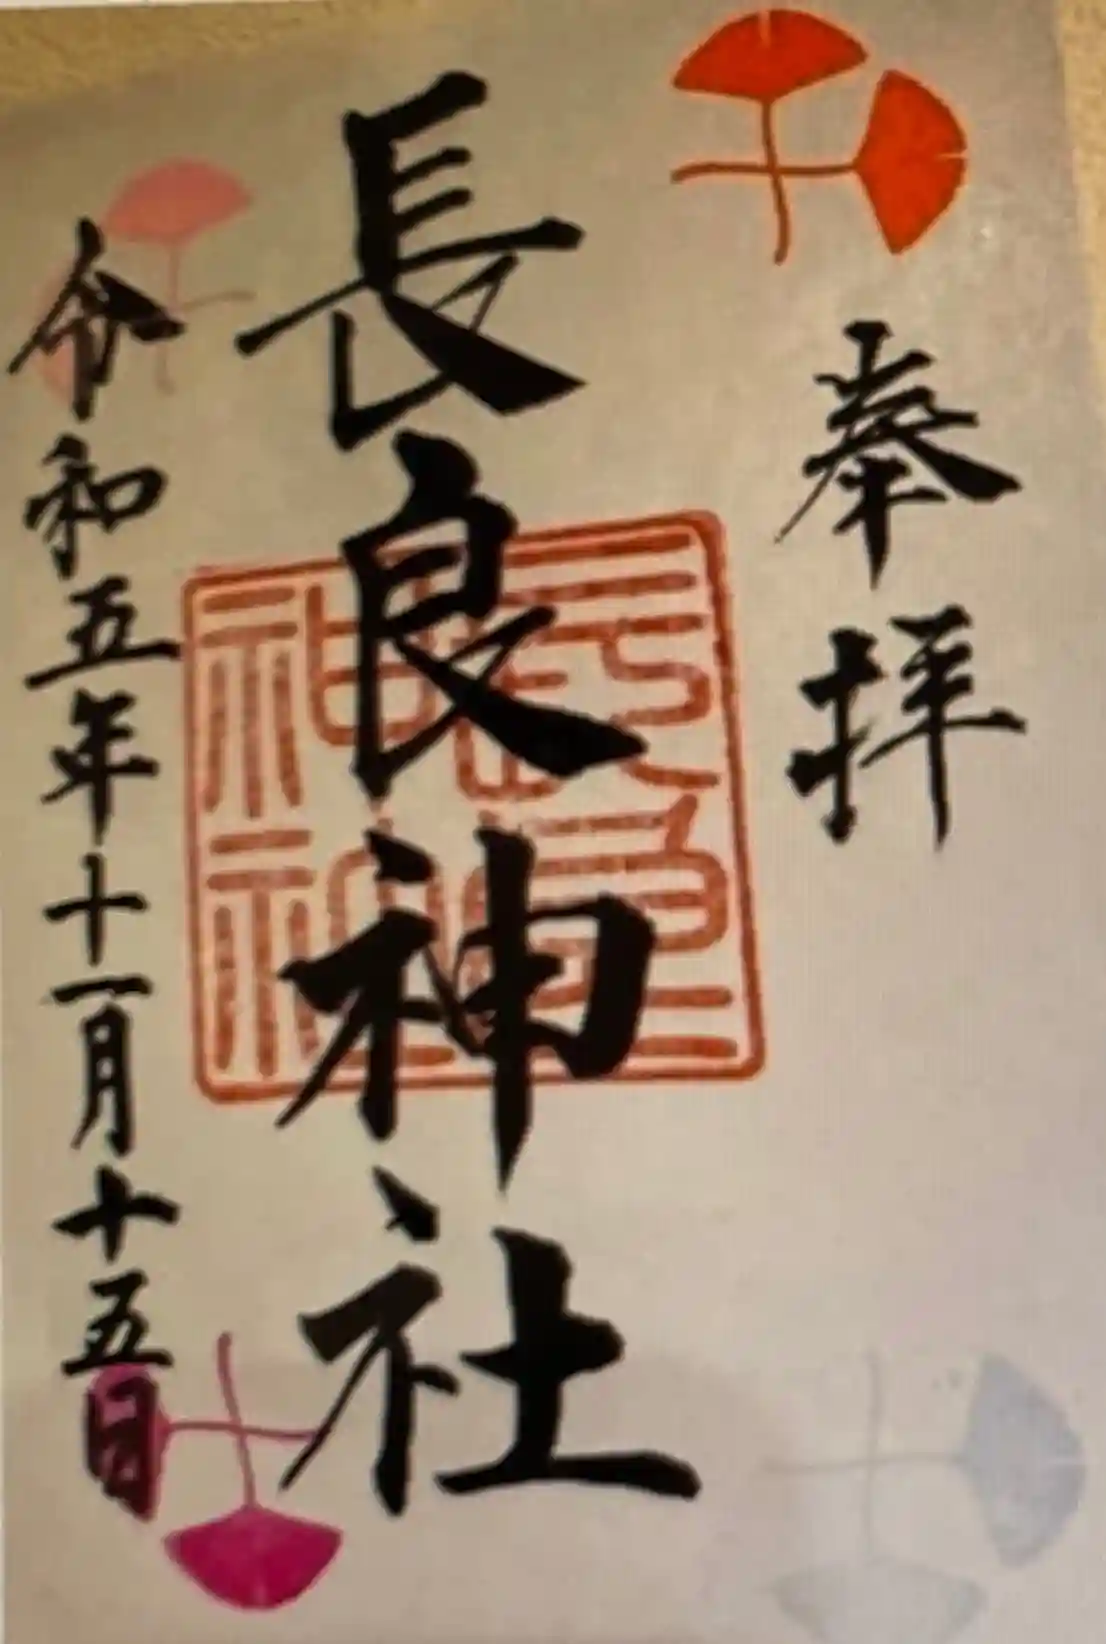 奉拝
長良神社
長良神社
令和五年十一月十五日